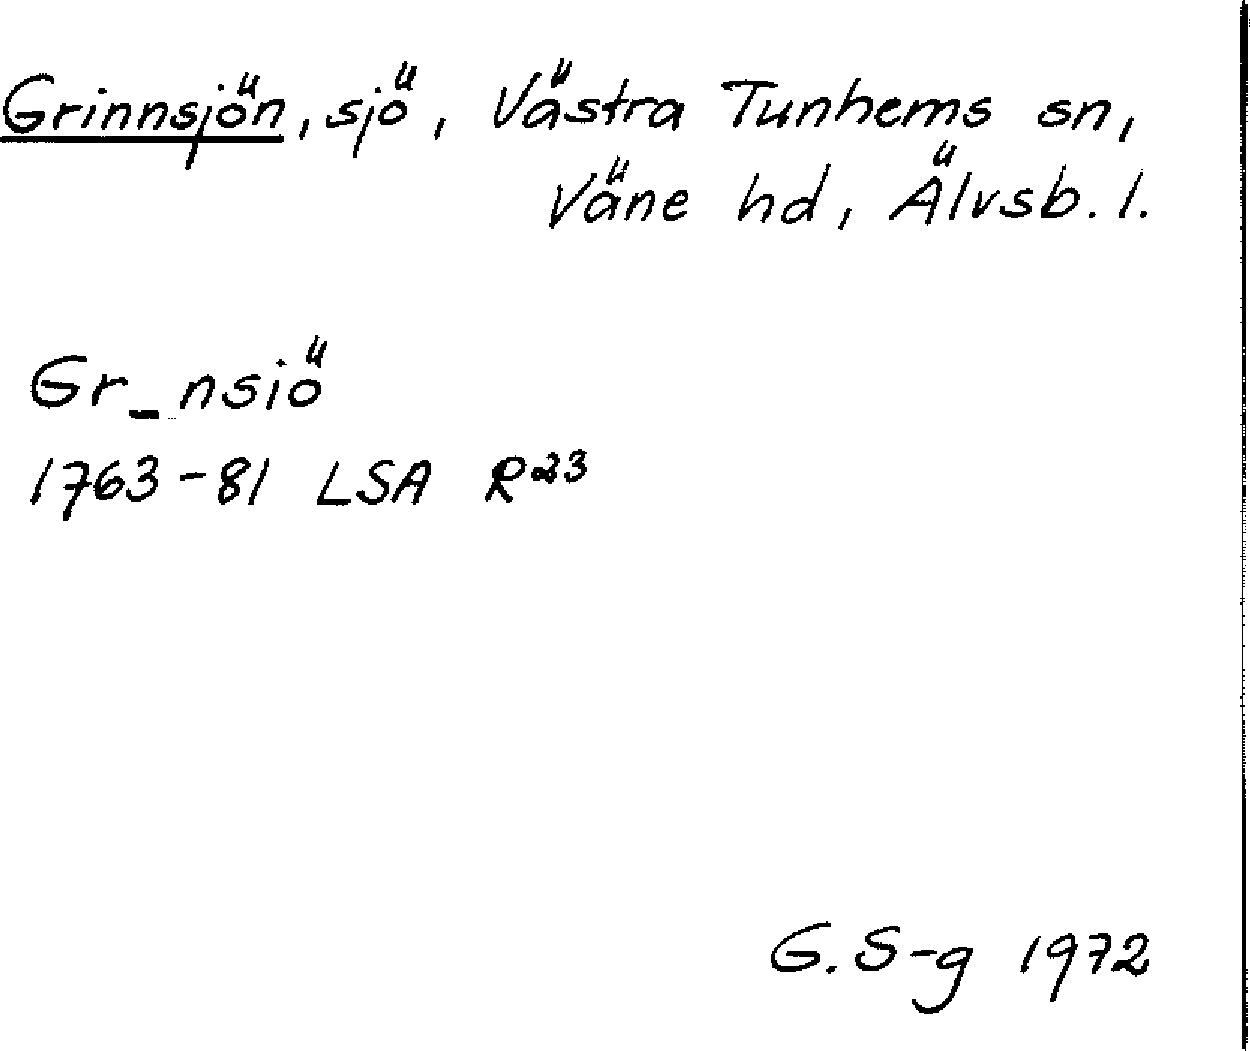 Grinnsjön, sjö, Västra Tunhems sn,
Väne hd, Älvsb. l.
Gr_nsiö
1763-81 LSA R23
G. S-g 1972